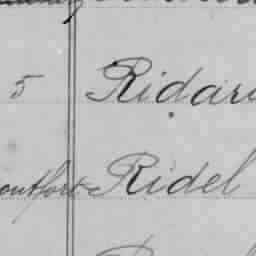 5 Ridar
ontfort Ridel